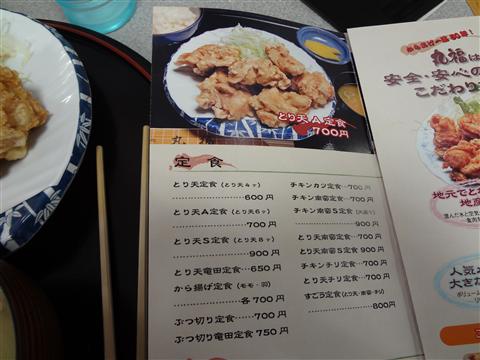 とり天A定食
700円
定食
とり天定食(とり天4ヶ)
……………………600円
とり天A定食(とり天6ヶ)
……………………700円
とり天S定食(とり天8ヶ)
……………………900円
とり天竜田定食…650円
から揚げ定食(モモ・羽)
…………………各700円
ぶつ切り定食……700円
ぶつ切り竜田定食750円
チキンカツ定食…700円
チキン南蛮定食…700円
チキン南蛮S定食
……………………900円
とり天南蛮定食…700円
とり天南蛮S定食 900円
チキンチリ定食…700円
とり天チリ定食…700円
すごう定食(とり天・南蛮・チリ)
……………………800円
から揚げ
亀福は
安全・安心の
こだわり
地元でと
地産
人気
大きな